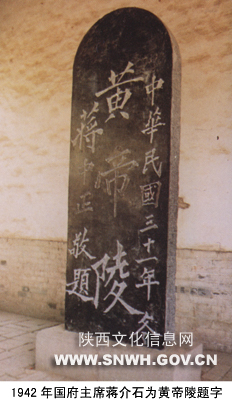 中華民國三十一年冬
黃帝陵
蔣中正 敬題
陕西文化信息网
WWW.SNWH.GOV.CN
1942 年国府主席蒋介石为黄帝陵题字